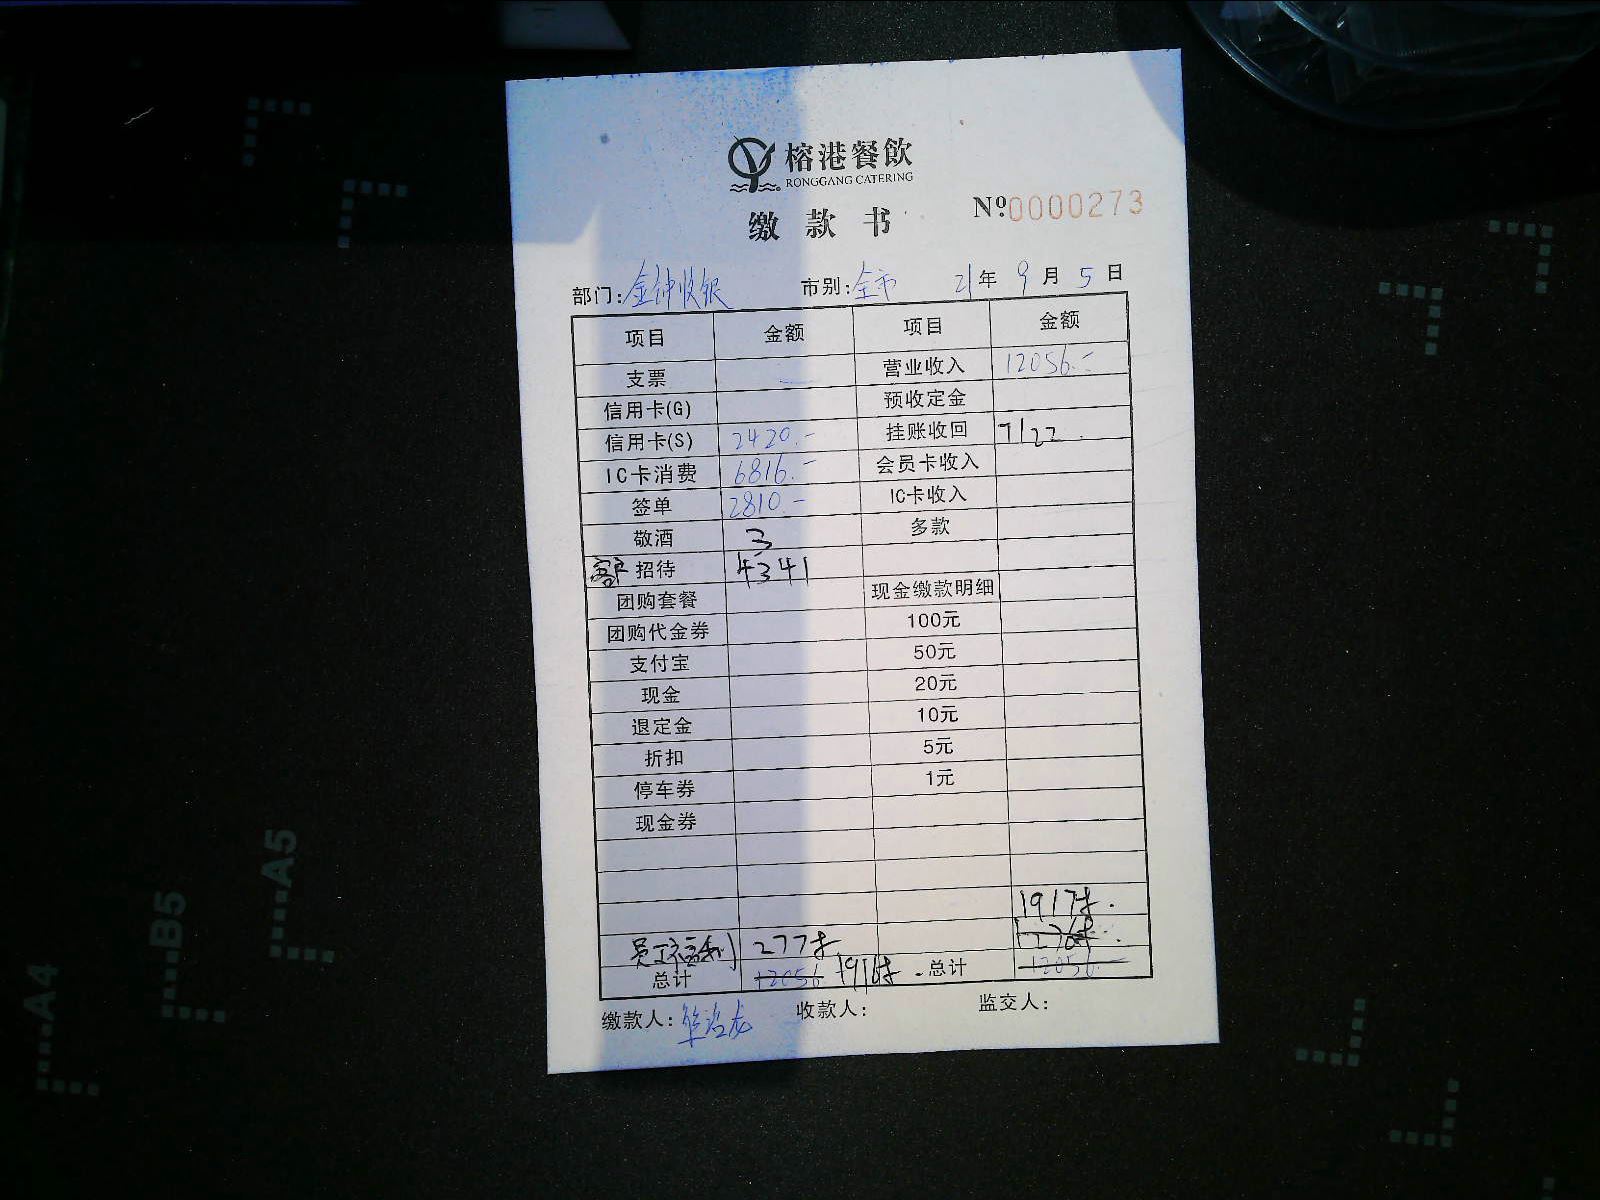 榕港餐飲
RONGGANG CATERING
缴款书 Nº0000273
部门:金钟收银 市别:全市 21年9月5日
项目 金额 项目 金额
支票 — 营业收入 12056.-
信用卡(G) 预收定金
信用卡(S) 2420.- 挂账收回 7122.
IC卡消费 6816.- 会员卡收入
签单 2810.- IC卡收入
敬酒 3 多款
客户招待 4341
团购套餐 现金缴款明细
团购代金券 100元
支付宝 50元
现金 20元
退定金 10元
折扣 5元
停车券 1元
现金券
员工福利 277
总计 12056 总计 12056.-
缴款人: 收款人: 监交人:
A4
B5
A5